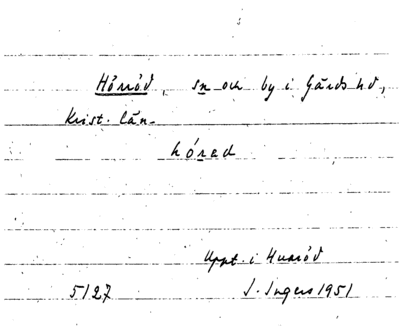 Hörröd, sn och by i Gärds hd,
Krist. län.
hó̱red
Uppt. i Huaröd
5127 I. Ingers 1951